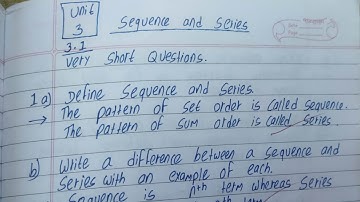 Unit
3
Sequence and Series
3.1
Very Short Questions.
1 a) Define Sequence and Series
→ The pattern of Set order is called Sequence.
The pattern of Sum order is called Series
b) Write a difference between a sequence and
Series with an example of each.
Sequence is nth term whereas Series